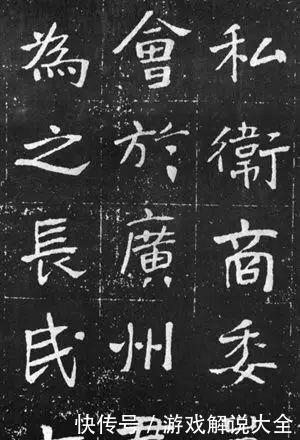 私衛商委
會於廣州
為之長民
快传号/游戏解说大全